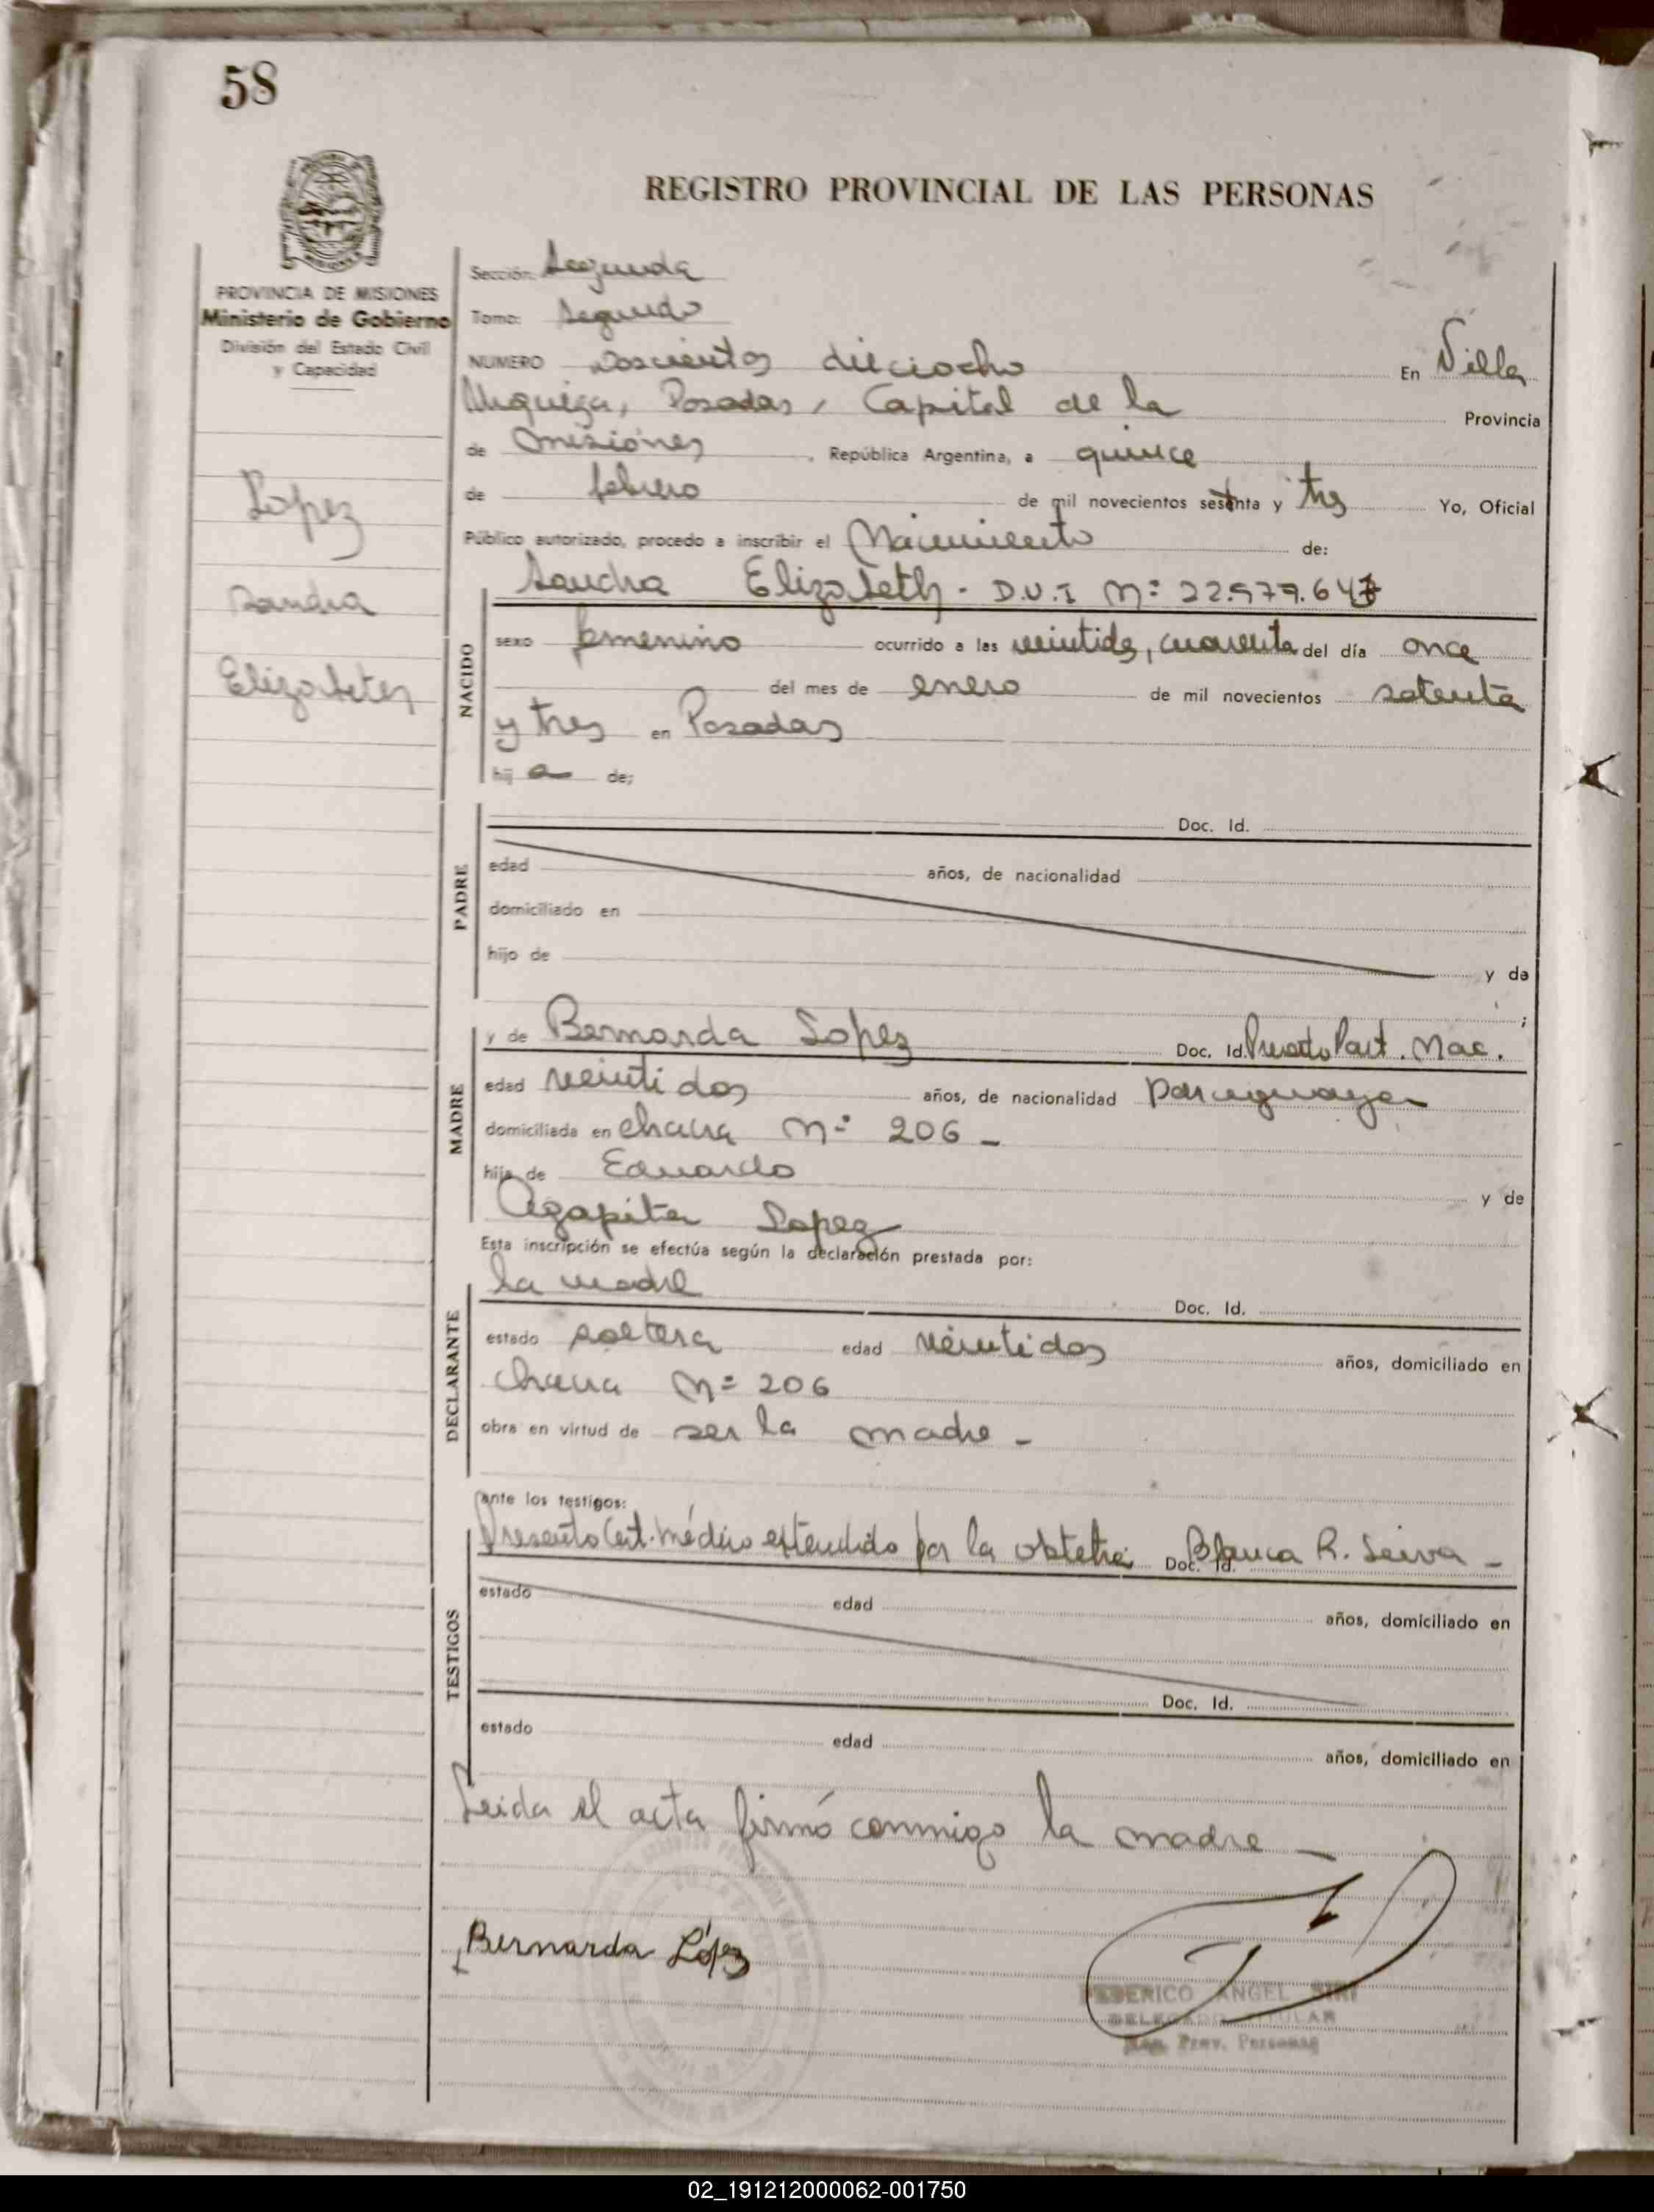 58
REGISTRO PROVINCIAL DE LAS PERSONAS
PROVINCIA DE MISIONES
Ministerio de Gobierno
División del Estado Civil
y Capacidad
Lopez
Sandra
Elizabeth
Sección: Segunda
Tomo: Segundo
NUMERO Doscientos dieciocho En Villa
Urquiza, Posadas, Capital de la Provincia
de Misiones, República Argentina, a quince
de febrero de mil novecientos setenta y tres Yo, Oficial
Público autorizado, procedo a inscribir el Nacimiento de:
NACIDO
Sandra Elizabeth - D.U.I Nº 22.979.647
sexo femenino ocurrido a las veintidos, cuarenta del día once
del mes de enero de mil novecientos setenta
y tres en Posadas
hij a de;
PADRE
Doc. Id.
edad años, de nacionalidad
domiciliado en
hijo de y de
;
MADRE
y de Bernarda Lopez Doc. Id. Presentó Part. Nac.
edad veintidos años, de nacionalidad paraguaya
domiciliada en chacra Nº 206 -
hija de Eduardo y de
Agapita Lopez
Esta inscripción se efectúa según la declaración prestada por:
DECLARANTE
la madre Doc. Id.
estado soltera edad veintidos años, domiciliado en
chacra Nº 206
obra en virtud de ser la madre -
ante los testigos:
TESTIGOS
Presento Cert. médico extendido por la obstetra Doc. Id. Blanca R. Leiva -
estado edad años, domiciliado en
Doc. Id.
estado edad años, domiciliado en
Leida el acta firmó conmigo la madre -
Bernarda López
FEDERICO ANGEL SIRI
DELEGADO TITULAR
Reg. Prov. Personas
02_191212000062-001750